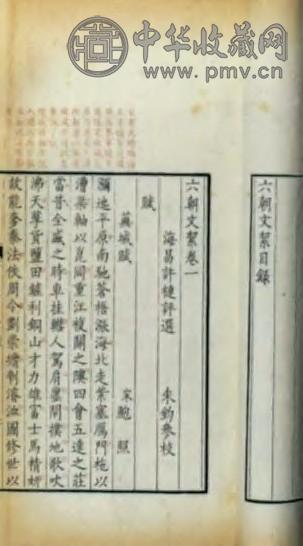 中华收藏网
www.pmv.cn
六朝文絜目錄
六朝文絜卷一
海昌許槤評選 朱鈞參校
賦
蕪城賦 宋鮑照
瀰迆平原南馳蒼梧漲海北走紫塞鴈門柂以
漕渠軸以崑岡重江複關之隩四會五達之莊
當昔全盛之時車挂轊人駕肩廛閈撲地歌吹
沸天孳貨鹽田鏟利銅山才力雄富士馬精妍
故能奓秦法佚周令劃崇墉刳濬洫圖修世以